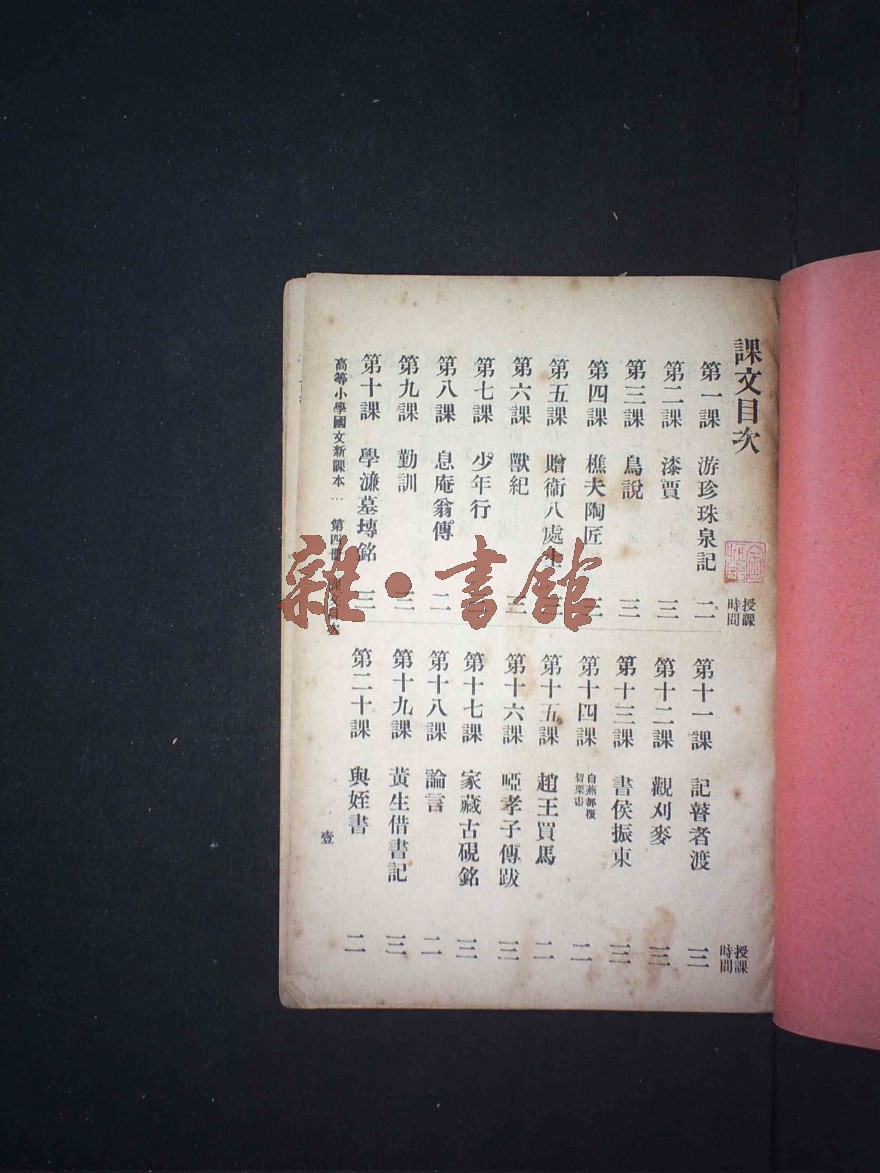 課文目次
授課時間
第一課 游珍珠泉記 二
第二課 漆賈 三
第三課 鳥說 三
第四課 樵夫陶匠 二
第五課 贈衞八處士
第六課 獸紀 三
第七課 少年行
第八課 息庵翁傳 二
第九課 勤訓 三
第十課 學濂墓塼銘 三
授課時間
第十一課 記瞽者渡 三
第十二課 觀刈麥 三
第十三課 書侯振東 三
第十四課 二
第十五課 趙王買馬 二
第十六課 啞孝子傳跋 三
第十七課 家藏古硯銘 三
第十八課 論言 二
第十九課 黃生借書記 三
第二十課 與姪書 二
高等小學國文新課本 第四冊 課文目次 壹
雜·書館